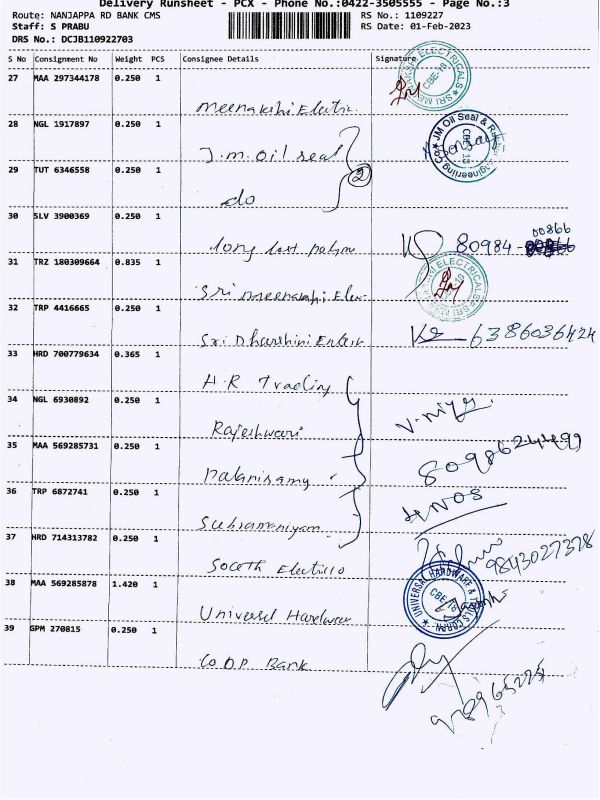 Delivery Runsheet - PCX - Phone No.:0422-3505555 - Page No.:3
Route: NANJAPPA RD BANK CMS
RS No.: 1109227
Staff: S PRABU
RS Date: 01-Feb-2023
DRS No.: DCJB110922703
S No Consignment No Weight PCS Consignee Details Signature
27 MAA 297344178 0.250 1
Meenakshi Electric.
SRI MEENAKSHI ELECTRICALS CBE-18
28 NGL 1917897 0.250 1
J.M. Oil seal
JM Oil Seal & Engineering Co
29 TUT 6346558 0.250 1
do
2
30 SLV 3900369 0.250 1
long last
80984-00866
31 TRZ 180309664 0.835 1
Sri meenakshi Elec
ELECTRICALS SRI
32 TRP 4416665 0.250 1
Sri Dharshini
6386036424
33 HRD 700779634 0.365 1
H.R Trading
34 NGL 6930892 0.250 1
Rajeshwari
35 MAA 569285731 0.250 1
Palanisamy
36 TRP 6872741 0.250 1
Subramaniyam
4 NOS
37 HRD 714313782 0.250 1
9843027328
38 MAA 569285878 1.420 1
Universel Hardwar
UNIVERSAL HARDWARE & TOOLS CORPN. CBE-18
39 GPM 270815 0.250 1
Co.O.P Bank